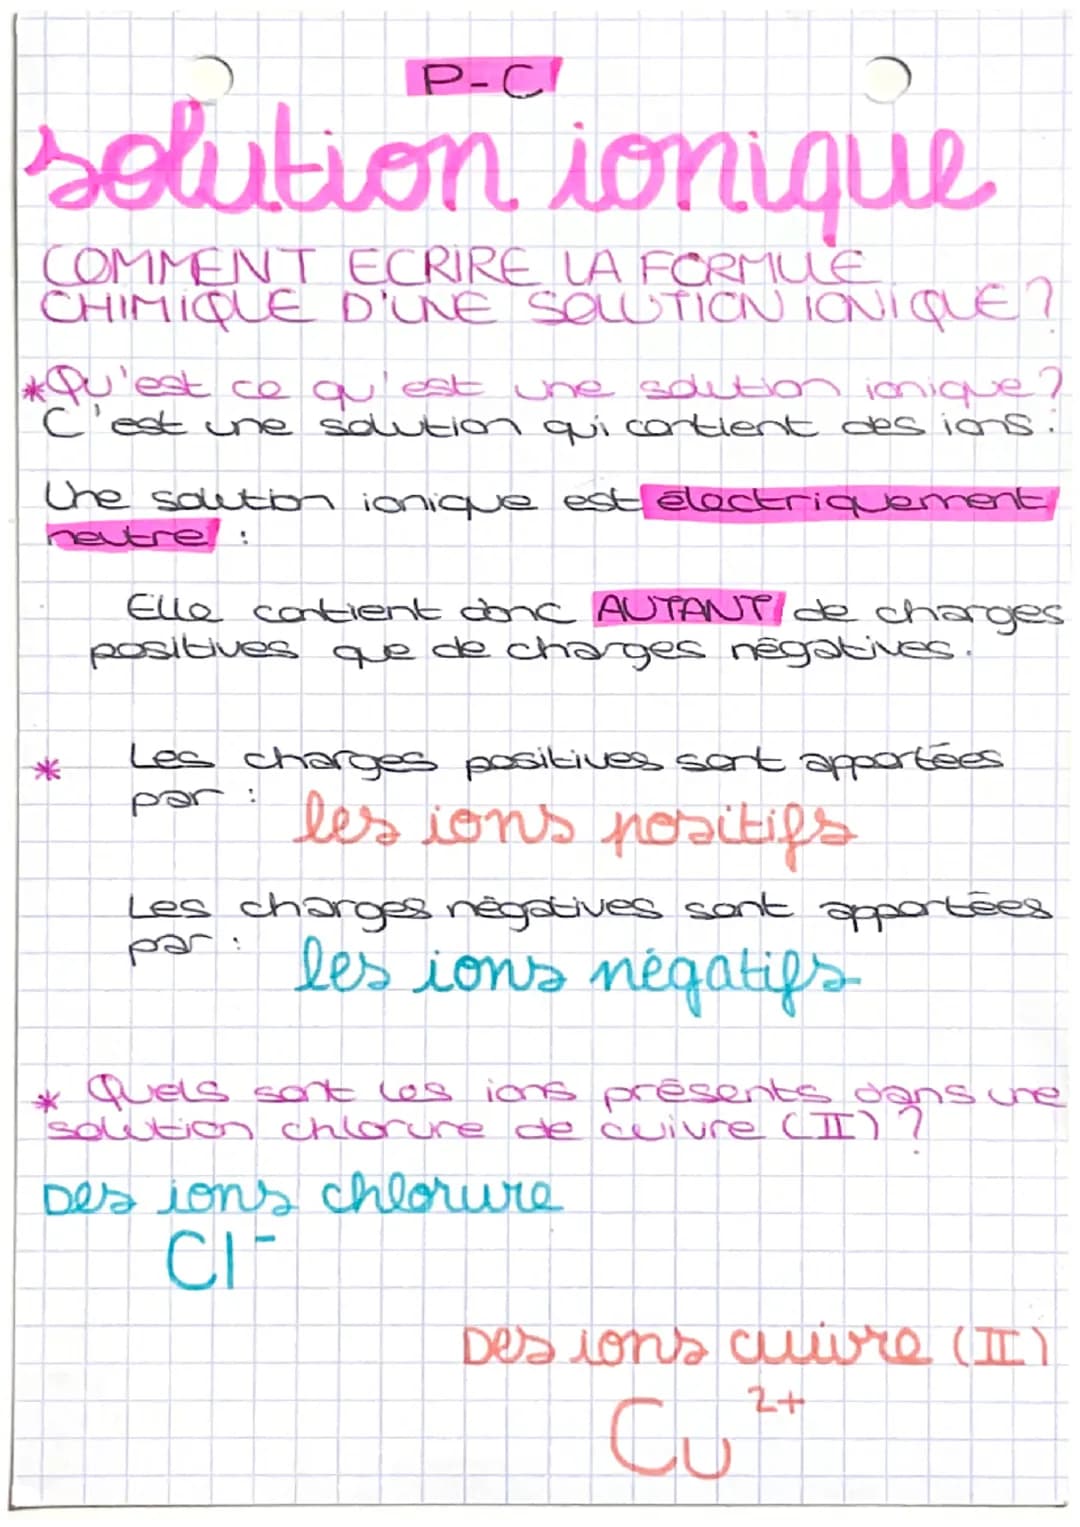 P-C
solution ionique
COMMENT ECRIRE LA FORMULE
CHIMIQUE D'UNE SOLUTION IONIQUE ?
*Qu'est ce qu'est une solution ionique ?
C'est une solution qui contient des ions :
Une solution ionique est électriquement
neutre :
Elle contient donc AUTANT de charges
positives que de charges négatives.
* Les charges positives sont apportées
par :
les ions positifs
Les charges négatives sont apportées
par :
les ions négatifs
* Quels sont les ions présents dans une
solution chlorure de cuivre (II) ?
Des ions chlorure
Cl⁻
Des ions cuivre (II)
Cu²⁺